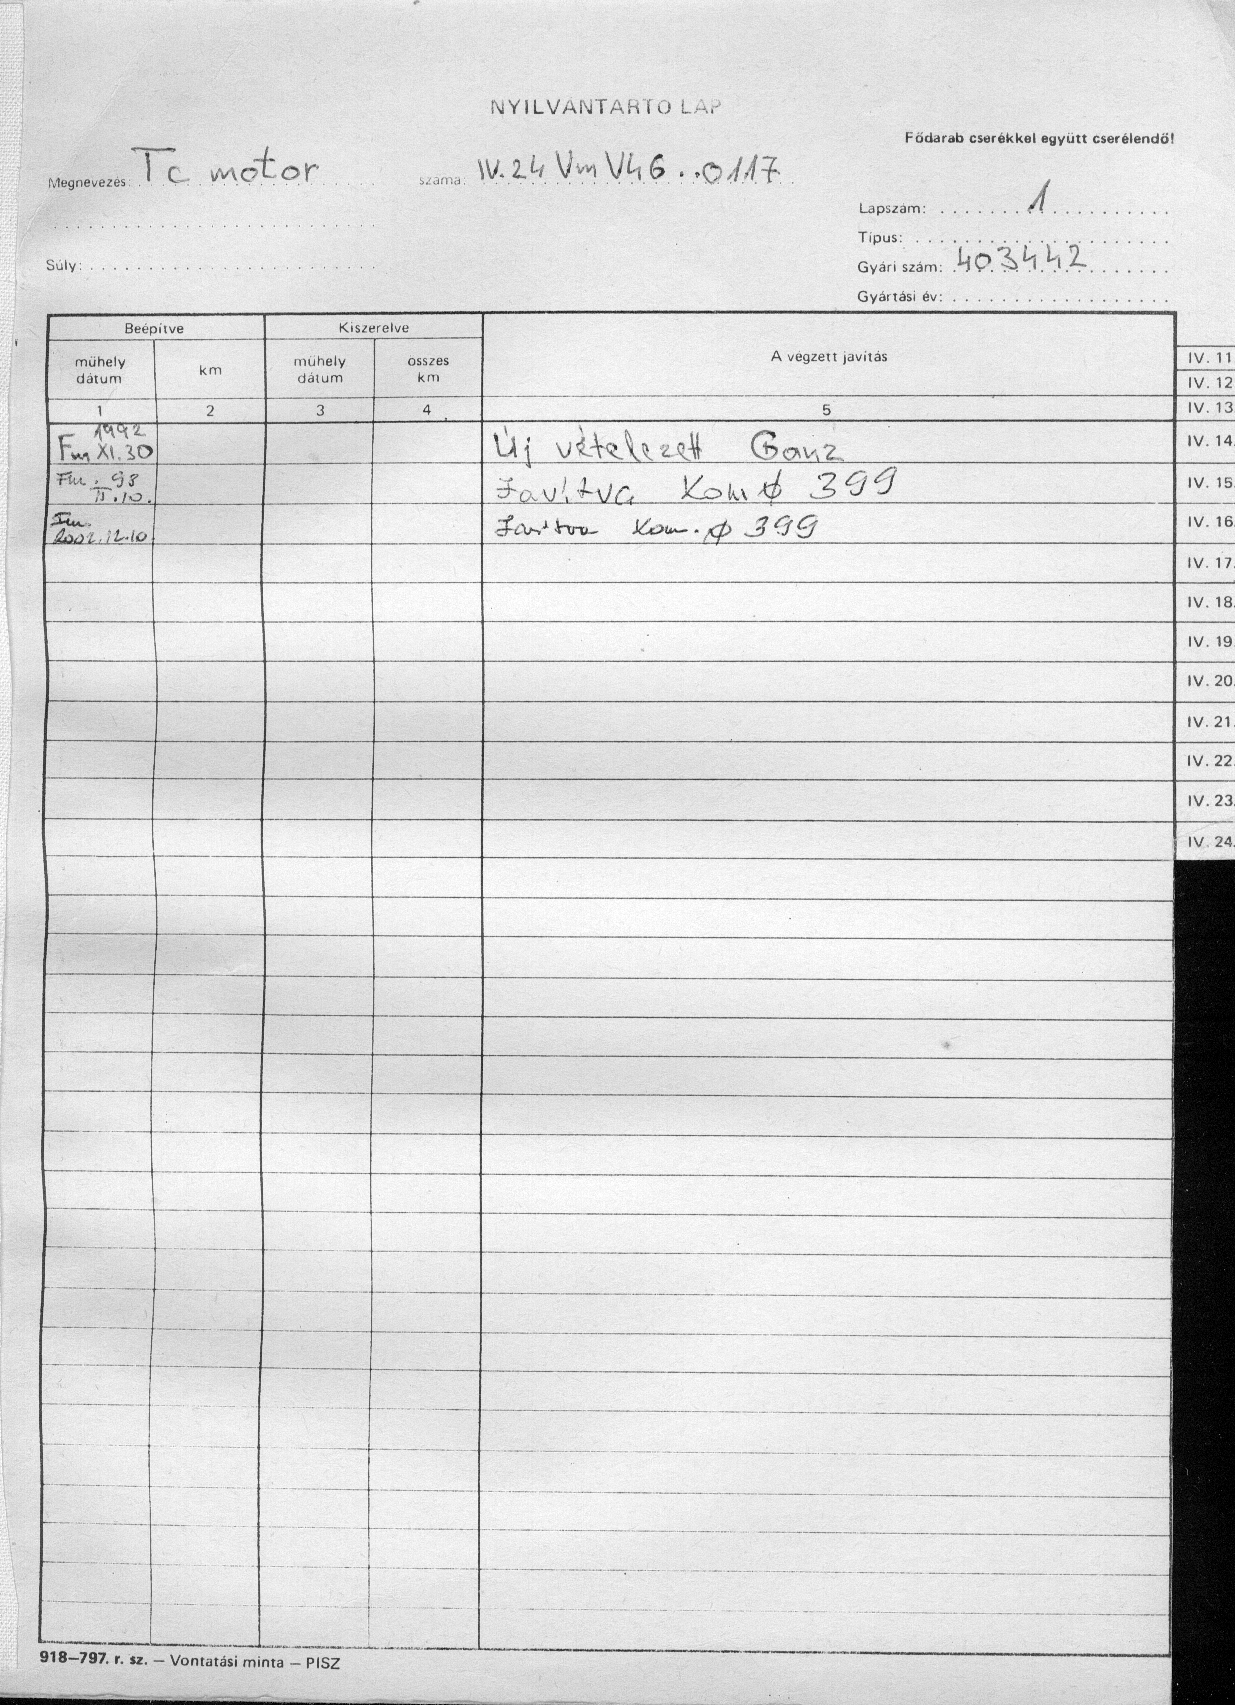 NYILVÁNTARTÓ LAP
Fődarab cserékkel együtt cserélendő!
Megnevezés: Tc motor száma: IV. 24 Vm V46 .. 0117
Lapszám: 1
Típus:
Súly:
Gyári szám: 403442
Gyártási év:
Beépítve Kiszerelve
műhely dátum km műhely dátum összes km A végzett javítás
1 2 3 4 5
1992
Fm XI.30 Új vételezett Ganz
Fm. 98
II.10. Javítva Kom ϕ 399
Fm.
2002.12.10 Javítva Kom. ϕ 399
IV. 11
IV. 12
IV. 13
IV. 14.
IV. 15.
IV. 16.
IV. 17.
IV. 18.
IV. 19.
IV. 20.
IV. 21.
IV. 22.
IV. 23.
IV. 24.
918–797. r. sz. – Vontatási minta – PISZ